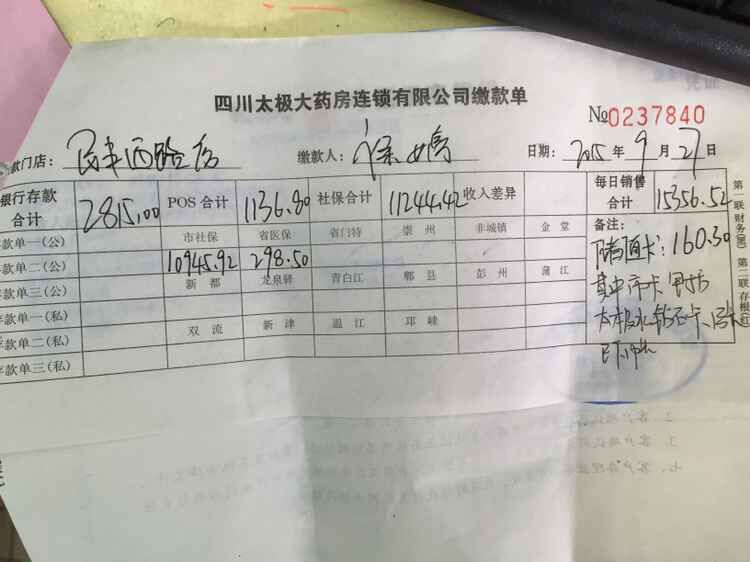 四川太极大药房连锁有限公司缴款单
№0237840
款门店: 民丰西路店 缴款人: 日期: 2015 年 9 月 27 日
银行存款合计 2815.00 POS 合计 1136.80 社保合计 11244.42 收入差异 每日销售合计 15356.52
存款单一(公) 市社保 省医保 省门特 崇州 非城镇 金堂 备注:
存款单二(公) 10945.92 298.50 储值卡: 160.30
存款单三(公) 新都 龙泉驿 青白江 郫县 彭州 蒲江 其中市卡
存款单一(私)
存款单二(私) 双流 新津 温江 邛崃
存款单三(私)
第一联财务(黑) 第二联存根(红)